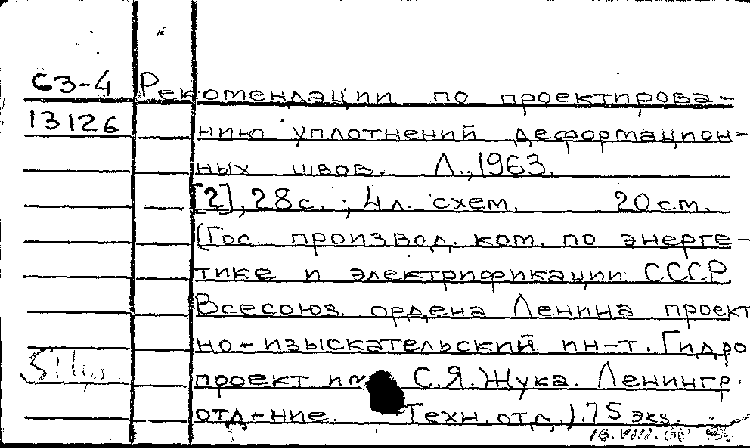 С3-4 Рекомендации по проектирова-
13126 нию уплотнений деформацион-
ных швов. Л., 1963.
[2], 28 с.; 4 л. схем. 20 см.
(Гос производ. ком. по энерге-
тике и электрификации СССР
Всесоюз. ордена Ленина проект
но-изыскательский ин-т. Гидро
проект им С.Я.Жука. Ленингр.
отд-ние. Техн. отд.). 75 экз.